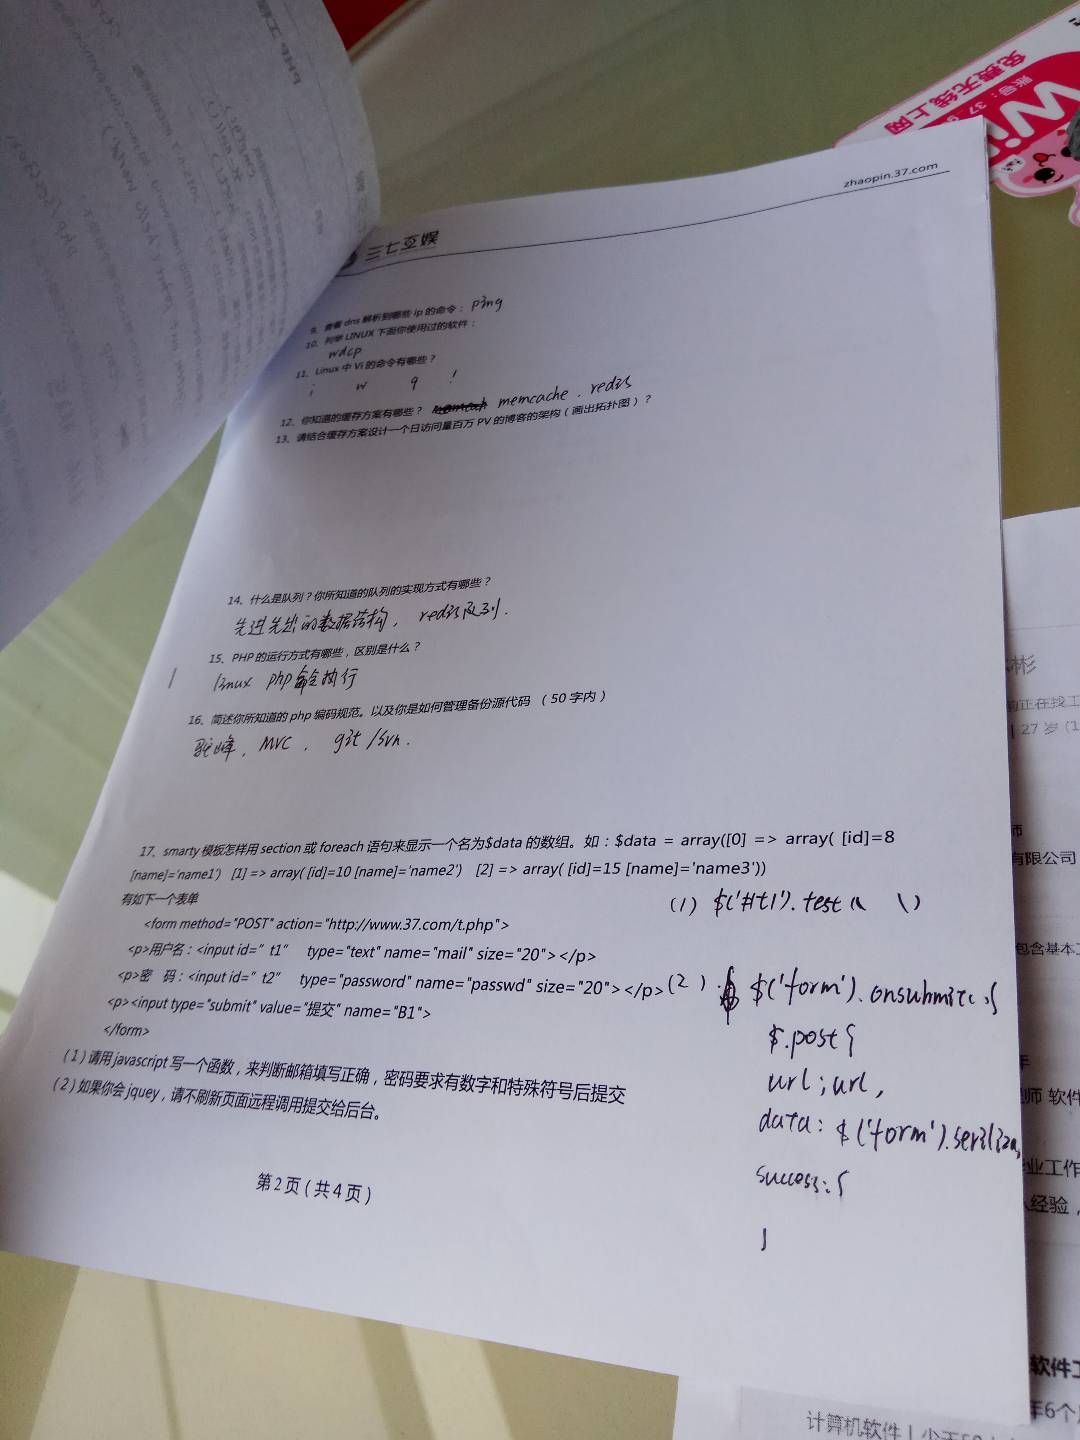 zhaopin.37.com
三七互娱
9、查看 dns 解析到哪些 ip 的命令： ping
10、列举 LINUX 下面你使用过的软件：
wdcp
11、Linux 中 Vi 的命令有哪些？
i w q !
12、你知道的缓存方案有哪些？ memcache . redis
13、请结合缓存方案设计一个日访问量百万 PV 的博客的架构（画出拓扑图）？
14、什么是队列？你所知道的队列的实现方式有哪些？
先进先出的数据结构， redis队列.
15、PHP 的运行方式有哪些，区别是什么？
linux php 命令执行
16、简述你所知道的 php 编码规范。以及你是如何管理备份源代码 （50 字内）
驼峰, MVC , git /svn.
17、smarty 模板怎样用 section 或 foreach 语句来显示一个名为$data 的数组。如：$data = array([0] => array( [id]=8
[name]='name1') [1] => array( [id]=10 [name]='name2') [2] => array( [id]=15 [name]='name3'))
有如下一个表单
(1) $('#t1').test(\ \)
<form method="POST" action="http://www.37.com/t.php">
<p>用户名：<input id=" t1" type="text" name="mail" size="20"></p>
<p>密 码：<input id=" t2" type="password" name="passwd" size="20"></p>
(2) . $('form').onsubmit(.{
<p><input type="submit" value="提交" name="B1">
</form>
$.post{
url;url,
data: $('form').serilize,
success:{
}
（1）请用 javascript 写一个函数，来判断邮箱填写正确，密码要求有数字和特殊符号后提交
（2）如果你会 jquey，请不刷新页面远程调用提交给后台。
第 2 页 ( 共 4 页 )
免费无线上网
账号：37
Wi
彬
前正在找工
| 27 岁 (1
师
有限公司
包含基本工
师 软件
业工作
经验，
软件工
年6个月
计算机软件 |